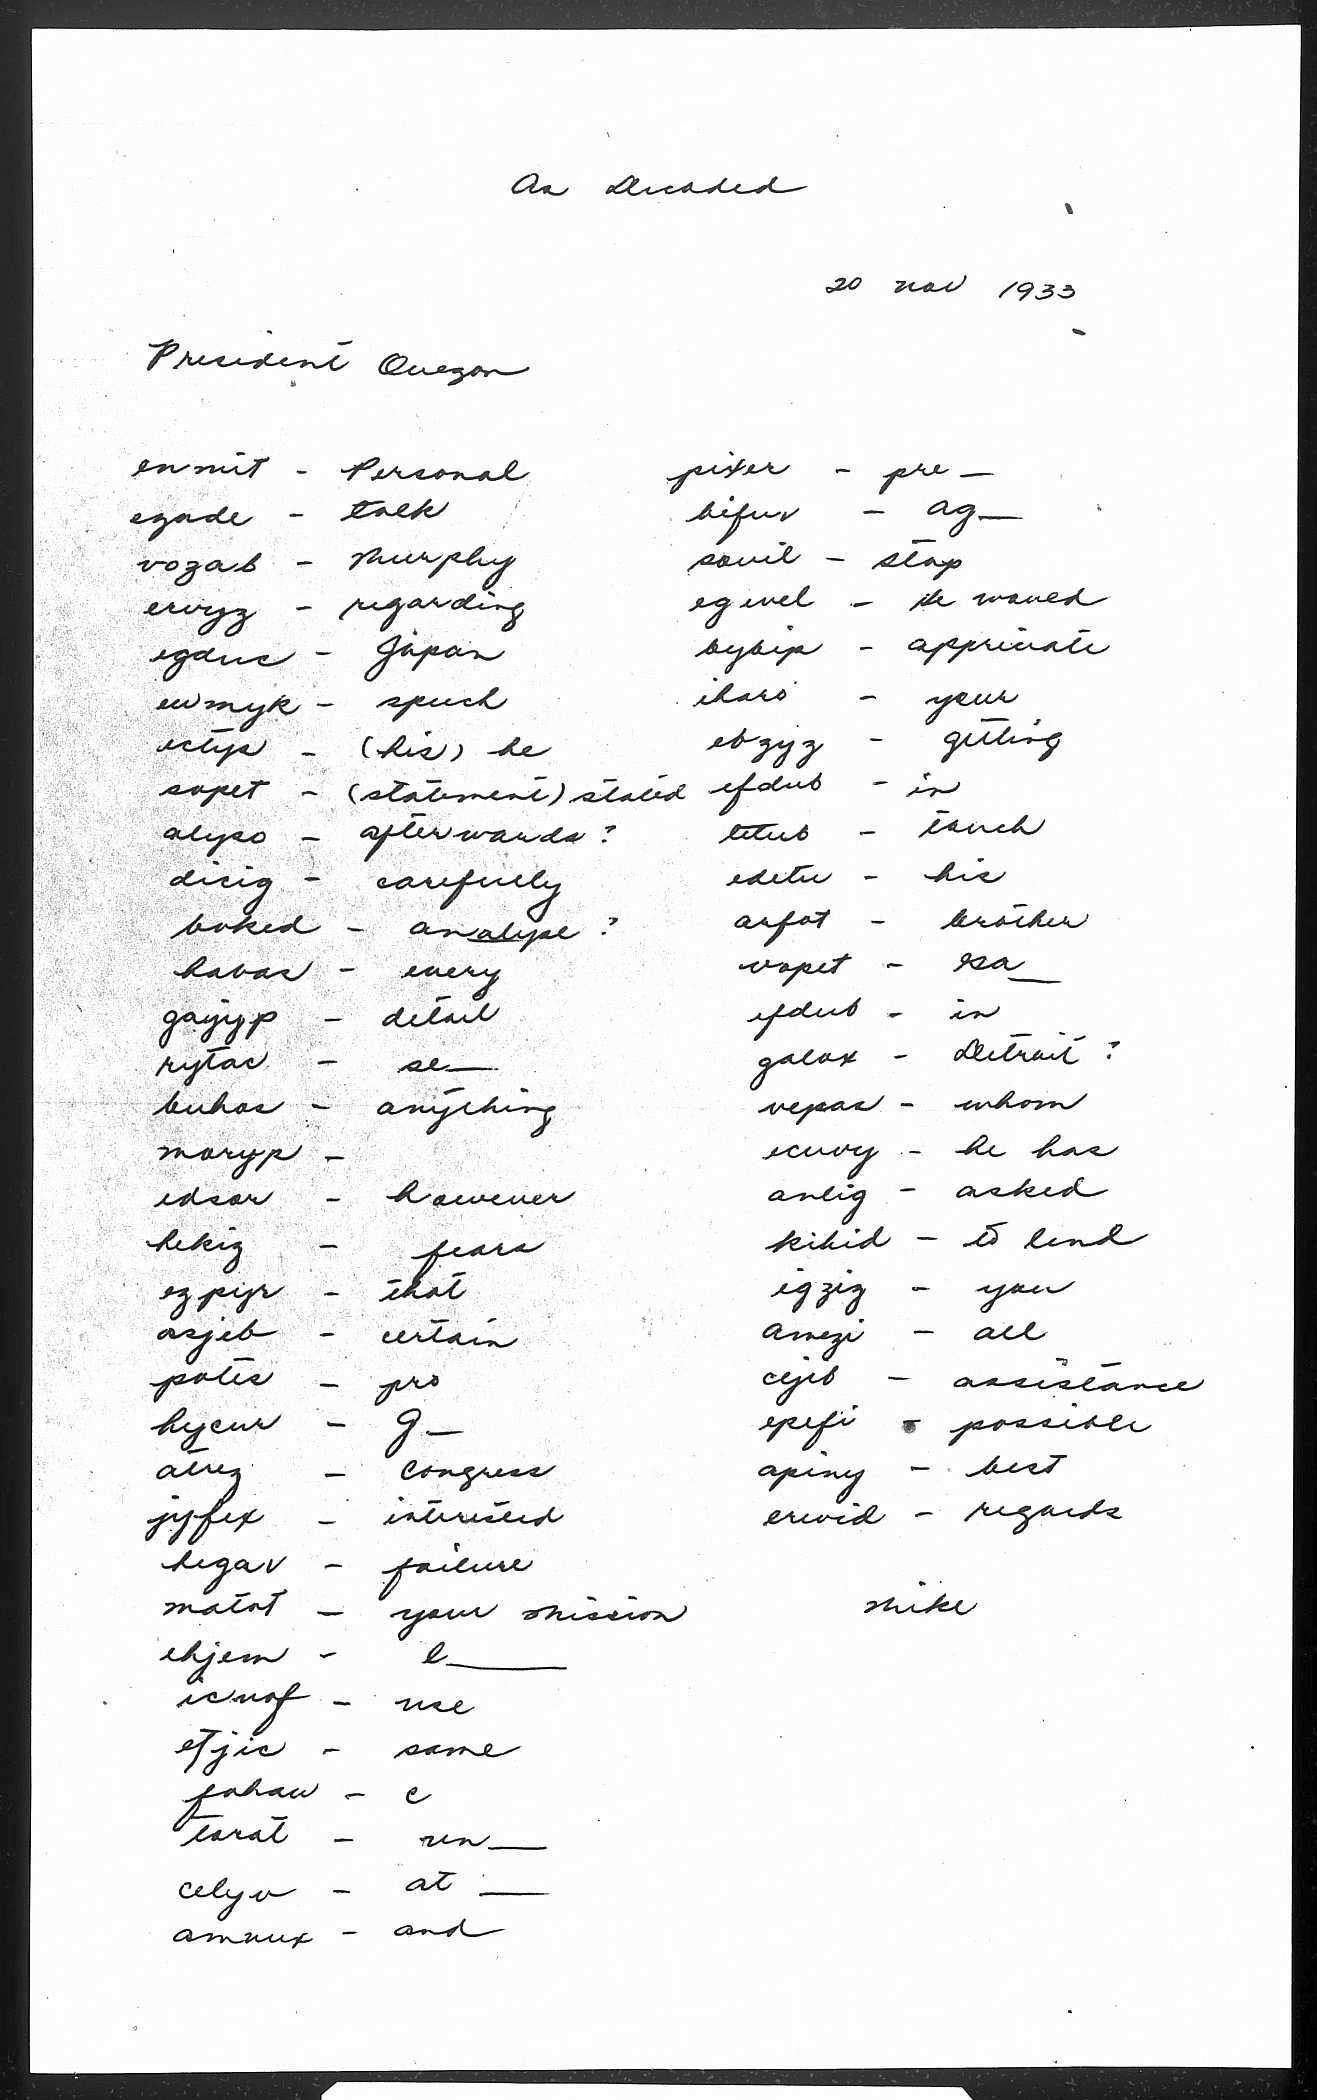 As Decoded
20 Nov 1933
President Quezon
enmit - Personal
egade - talk
vozab - Murphy
ervyz - regarding
egduc - Japan
ewmyk - speech
ectyp - (his) he
sopet - (statement) stated
alyso - afterwards?
dicig - carefully
boked - analype?
havas - every
gajyp - detail
rytac - se__
buhos - anything
moryp -
edsor - however
hekiz - fears
ezpyr - that
asjeb - certain
potis - pro
hycur - g__
atrez - Congress
jyfex - interested
hegav - failure
matot - your mission
ehjem - l____
icuof - use
etjic - same
fohaw - c
torat - un__
celyv - at __
amvux - and
pixer - pre__
bifuv - ag__
sovil - stop
egevel - He waved
bybip - appriciate
iharo - your
ebzyz - getting
efdub - in
tetub - touch
edetu - his
arfot - brother
vopet - Esa__
efdub - in
galox - Detroit?
vepas - whom
ecuvy - he has
anlig - asked
kihid - to lend
igziz - you
amezi - all
cejib - assistance
epefi - possible
apiny - best
erevid - regards
Mike